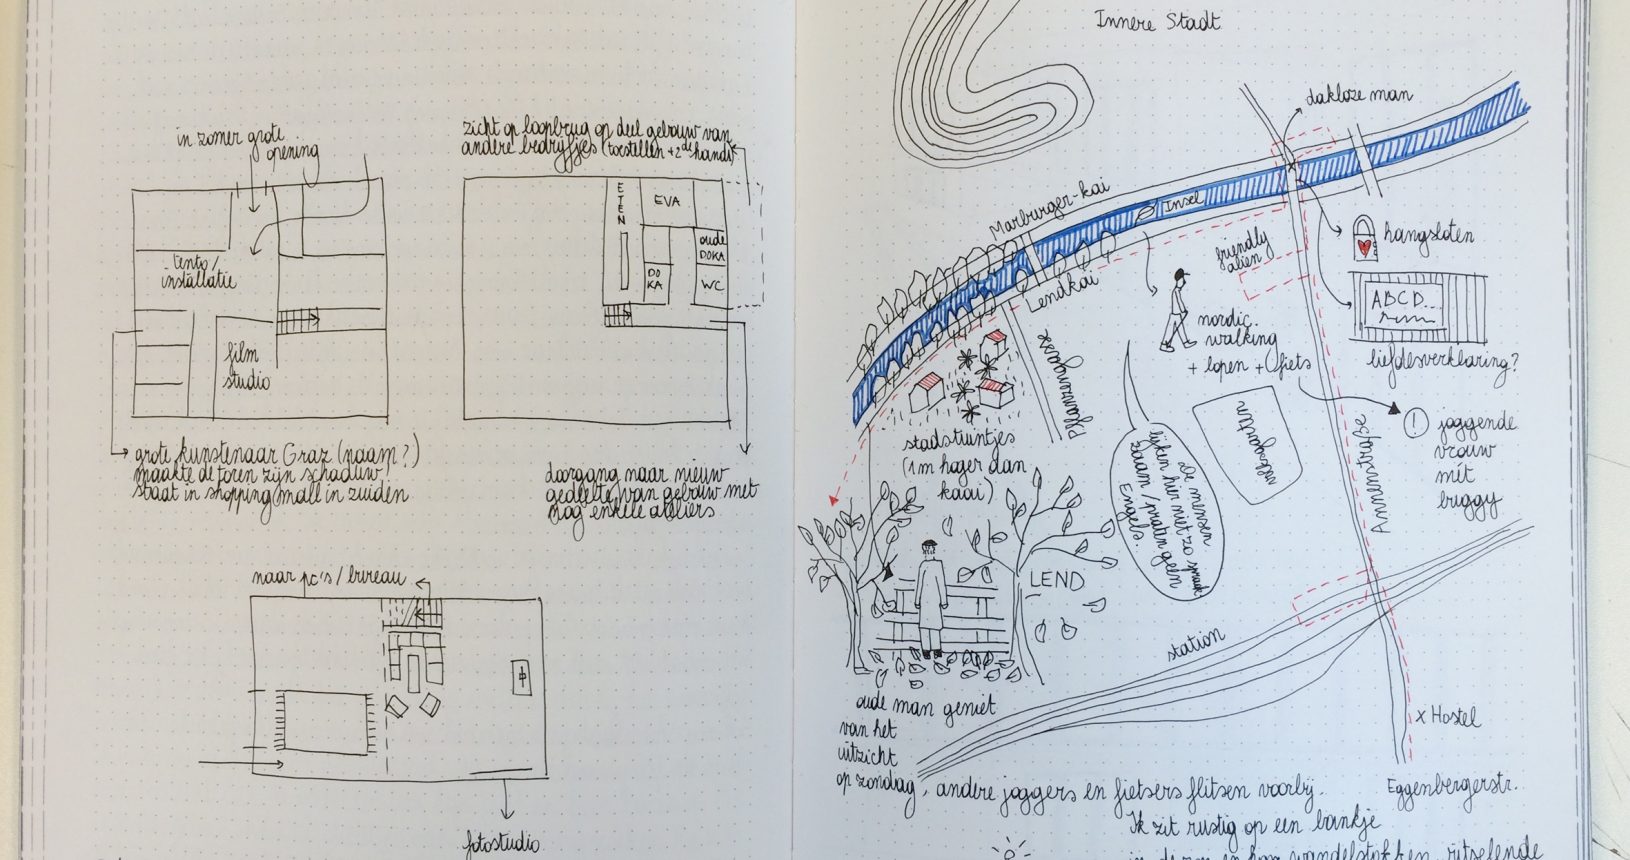 in zomer grote
opening
tento/
installatie
film
studio
grote kunstenaar Graz (naam?)
maakte de toren zijn schaduw
staat in shopping mall in zuiden
zicht op loopbrug op deel gebouw van
andere bedrijfjes (toestellen + 2de hands)
ETEN
EVA
oude
DOKA
DO
KA
WC
doorgang naar nieuw
gedeelte van gebouw met
nog enkele ateliers
naar pc's / bureau
fotostudio
Innere Stadt
dakloze man
Marburger-kai
Insel
hangsloten
friendly
alien
Lendkai
ABCD...
nordic
walking
+ lopen + fiets
liefdesverklaring?
stadstuintjes
(1m hoger dan
kaai)
De mensen
lijken hier niet zo spraak
zaam / praten geen
Engels.
volksgarten
Annenstraße
! joggende
vrouw
mit
buggy
LEND
station
oude man geniet
van het
uitzicht
op zondag, andere joggers en fietsers flitsen voorbij.
x Hostel
Eggenbergerstr.
Ik zit rustig op een bankje
in de zon en hoor wandelstokken, ritselende